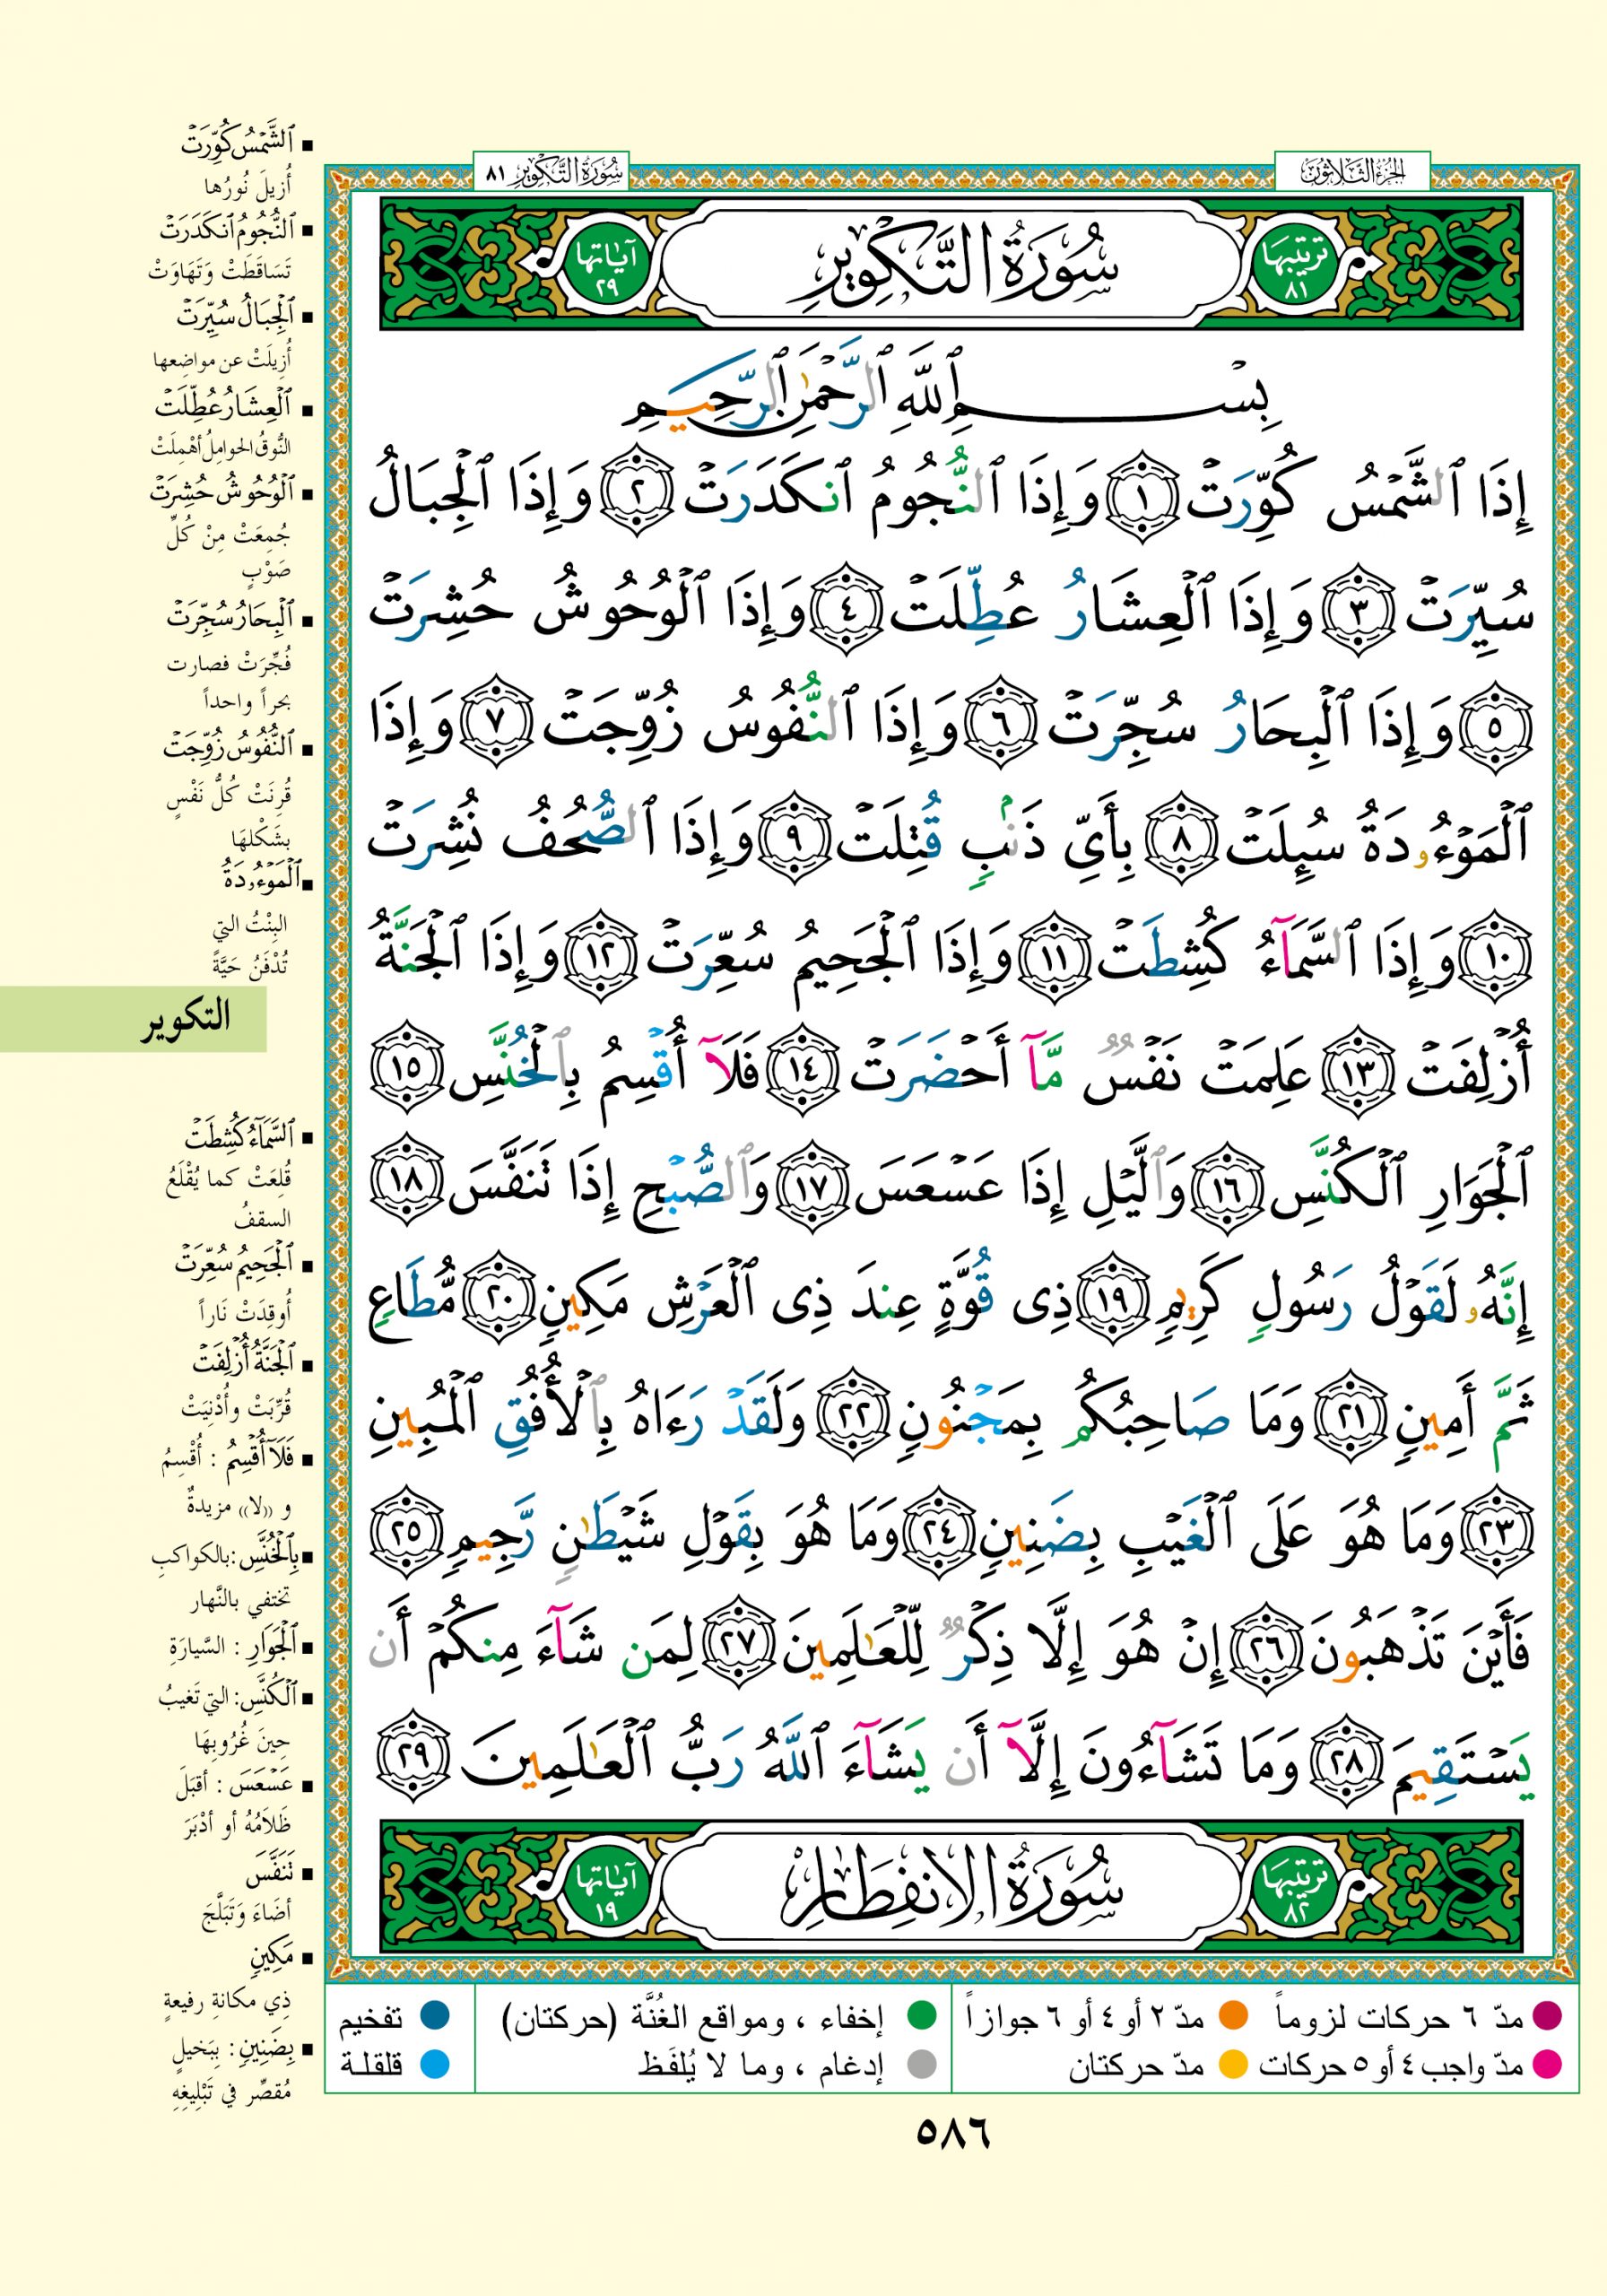 الجزء الثلاثون
سُورَةُ التَّكْوِيرِ ٨١
ترتيبها ٨١
سُورَةُ التَّكْوِيرِ
آياتها ٢٩
بِسْمِ ٱللَّهِ ٱلرَّحْمَٰنِ ٱلرَّحِيمِ
إِذَا ٱلشَّمْسُ كُوِّرَتْ ١ وَإِذَا ٱلنُّجُومُ ٱنكَدَرَتْ ٢ وَإِذَا ٱلْجِبَالُ
سُيِّرَتْ ٣ وَإِذَا ٱلْعِشَارُ عُطِّلَتْ ٤ وَإِذَا ٱلْوُحُوشُ حُشِرَتْ
٥ وَإِذَا ٱلْبِحَارُ سُجِّرَتْ ٦ وَإِذَا ٱلنُّفُوسُ زُوِّجَتْ ٧ وَإِذَا
ٱلْمَوْءُۥدَةُ سُئِلَتْ ٨ بِأَىِّ ذَنۢبٍ قُتِلَتْ ٩ وَإِذَا ٱلصُّحُفُ نُشِرَتْ
١٠ وَإِذَا ٱلسَّمَآءُ كُشِطَتْ ١١ وَإِذَا ٱلْجَحِيمُ سُعِّرَتْ ١٢ وَإِذَا ٱلْجَنَّةُ
أُزْلِفَتْ ١٣ عَلِمَتْ نَفْسٌ مَّآ أَحْضَرَتْ ١٤ فَلَآ أُقْسِمُ بِٱلْخُنَّسِ ١٥
ٱلْجَوَارِ ٱلْكُنَّسِ ١٦ وَٱلَّيْلِ إِذَا عَسْعَسَ ١٧ وَٱلصُّبْحِ إِذَا تَنَفَّسَ ١٨
إِنَّهُۥ لَقَوْلُ رَسُولٍ كَرِيمٍ ١٩ ذِى قُوَّةٍ عِندَ ذِى ٱلْعَرْشِ مَكِينٍ ٢٠ مُّطَاعٍ
ثَمَّ أَمِينٍ ٢١ وَمَا صَاحِبُكُم بِمَجْنُونٍ ٢٢ وَلَقَدْ رَءَاهُ بِٱلْأُفُقِ ٱلْمُبِينِ
٢٣ وَمَا هُوَ عَلَى ٱلْغَيْبِ بِضَنِينٍ ٢٤ وَمَا هُوَ بِقَوْلِ شَيْطَٰنٍ رَّجِيمٍ ٢٥
فَأَيْنَ تَذْهَبُونَ ٢٦ إِنْ هُوَ إِلَّا ذِكْرٌ لِّلْعَٰلَمِينَ ٢٧ لِمَن شَآءَ مِنكُمْ أَن
يَسْتَقِيمَ ٢٨ وَمَا تَشَآءُونَ إِلَّآ أَن يَشَآءَ ٱللَّهُ رَبُّ ٱلْعَٰلَمِينَ ٢٩
ترتيبها ٨٢
سُورَةُ الانفِطَارِ
آياتها ١٩
ٱلشَّمْسُ كُوِّرَتْ
أُزِيلَ نُورُها
ٱلنُّجُومُ ٱنكَدَرَتْ
تَسَاقَطَتْ وَتَهَاوَتْ
ٱلْجِبَالُ سُيِّرَتْ
أُزِيلَتْ عن مواضِعِها
ٱلْعِشَارُ عُطِّلَتْ
النُّوقُ الحوامِلُ أُهْمِلَتْ
ٱلْوُحُوشُ حُشِرَتْ
جُمِعَتْ مِنْ كُلِّ
صَوْبٍ
ٱلْبِحَارُ سُجِّرَتْ
فُجِّرَتْ فصارت
بحراً واحداً
ٱلنُّفُوسُ زُوِّجَتْ
قُرِنَتْ كُلُّ نَفْسٍ
بِشَكْلِهَا
ٱلْمَوْءُۥدَةُ
البِنْتُ التي
تُدْفَنُ حَيَّةً
التكوير
ٱلسَّمَآءُ كُشِطَتْ
قُلِعَتْ كما يُقْلَعُ
السقفُ
ٱلْجَحِيمُ سُعِّرَتْ
أُوقِدَتْ نَاراً
ٱلْجَنَّةُ أُزْلِفَتْ
قُرِّبَتْ وأُدْنِيَتْ
فَلَآ أُقْسِمُ : أُقْسِمُ
و ((لا)) مزيدةٌ
بِٱلْخُنَّسِ : بالكواكبِ
تختفي بالنَّهار
ٱلْجَوَارِ : السَّيارَةِ
ٱلْكُنَّسِ : التي تَغيبُ
حِينَ غُرُوبِهَا
عَسْعَسَ : أقبَلَ
ظَلامُهُ أو أدْبَرَ
تَنَفَّسَ
أضَاءَ وَتَبَلَّجَ
مَكِينٍ
ذِي مكانةٍ رفيعةٍ
بِضَنِينٍ : بِبَخيلٍ
مُقصِّرٍ في تَبْلِيغِهِ
مدّ ٦ حركات لزوماً
مدّ ٢ أو ٤ أو ٦ جوازاً
إخفاء ، ومواقع الغُنَّة (حركتان)
تفخيم
مدّ واجب ٤ أو ٥ حركات
مدّ حركتان
إدغام ، وما لا يُلفَظ
قلقلة
٥٨٦